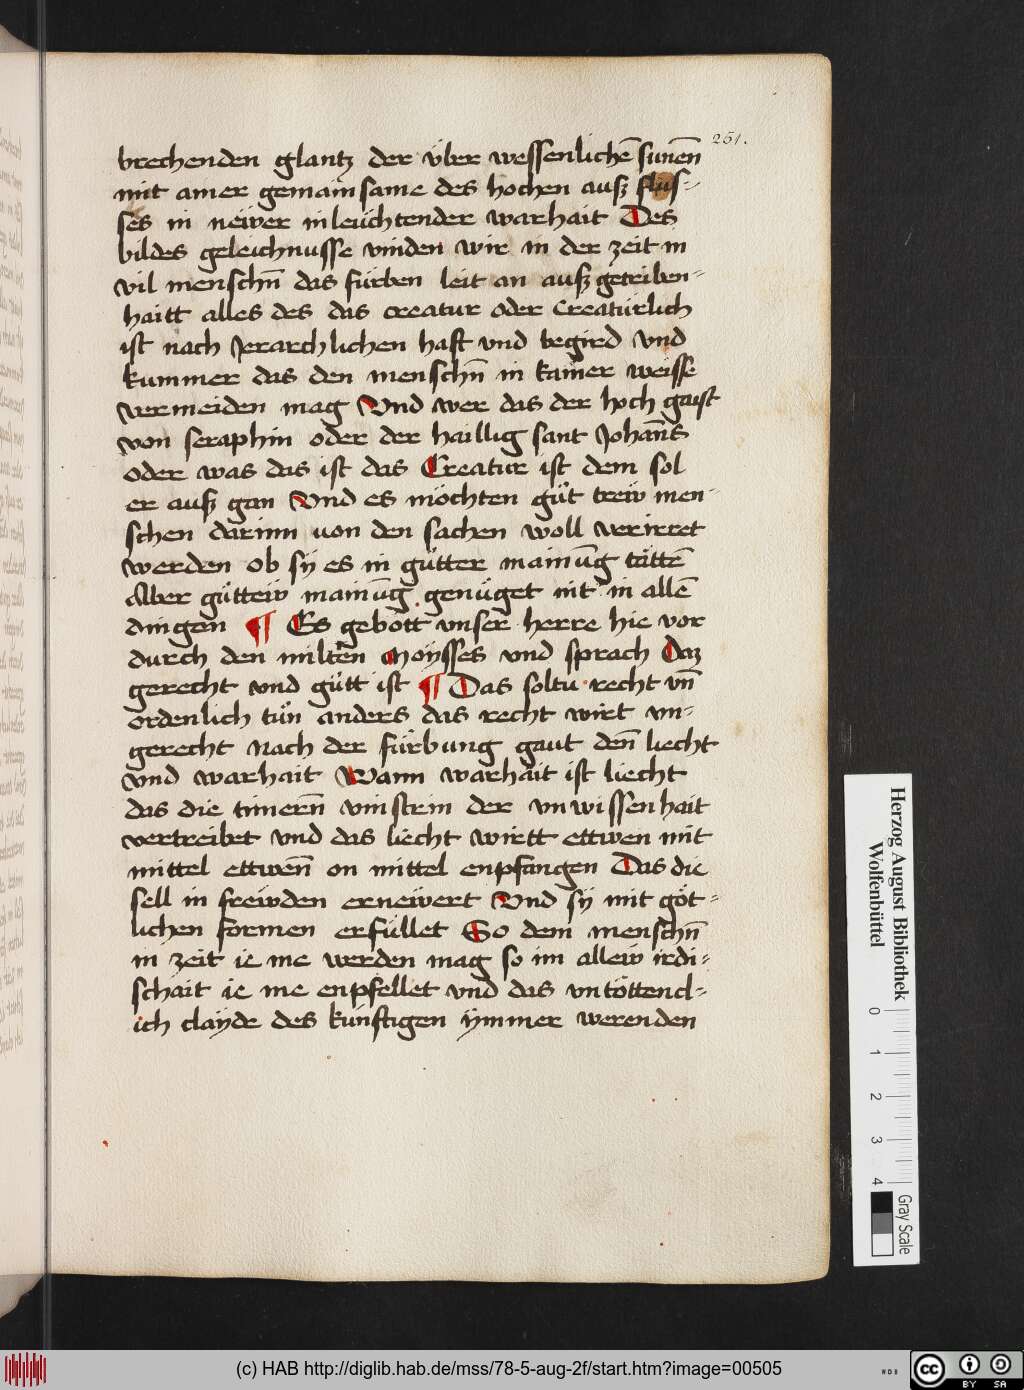 251.
brechenden glantz der über wessenlichē sunēn
mit amer gemainsame des hochen ausz flus=
ses in neẅer inleüchtender warhait Des
bildes geleichnusse vinden wir in der zeit in
vil menschn̄ das fürben leit an ausz getriben=
haitt alles des das creatur oder Creatürlich
ist nach Jerarchlichen haft vnd begird vnd
kummer das den menschn̄ in kainer weisse
vermeiden mag Vnd wer das der hoch gaist
von seraphin oder der haillig sant Johañs
oder was das ist das Creatur ist dem sol
er ausz gan Vnd es möchten gůt treẅ men=
schen darinn von den sachen woll verirret
werden ob sy es in gůtter mainūg tättē
Aber gůtteẅ mainūg genüget nit in allē
dingen ¶ Es gebott vnser herre hie vor
durch den milten Moÿsses vnd sprach Daz
gerecht vnd gůtt ist ¶ Das soltu recht vn̄
ordenlich tůn anders das recht wirt vn=
gerecht nach der fürbung gaut den̄ liecht
vnd warhait Wann warhait ist liecht
das die timern̄ vinstrin der vnwissenhait
vertreibet vnd das liecht wirtt ettwen mit
mittel ettwen̄ on mittel enpfangen Das die
sell in freẅden erneẅert Vnd sy mit göt=
lichen formen erfüllet So dem menschn̄
in zeit ie me werden mag so im alleẅ irdi=
schait ie me enpfellet vnd das vntöttend=
lich clayde des künftigen ÿmmer werenden
Herzog August Bibliothek
Wolfenbüttel
0
1
2
3
4
Gray Scale
(c) HAB http://diglib.hab.de/mss/78-5-aug-2f/start.htm?image=00505
WDB
cc
BY SA